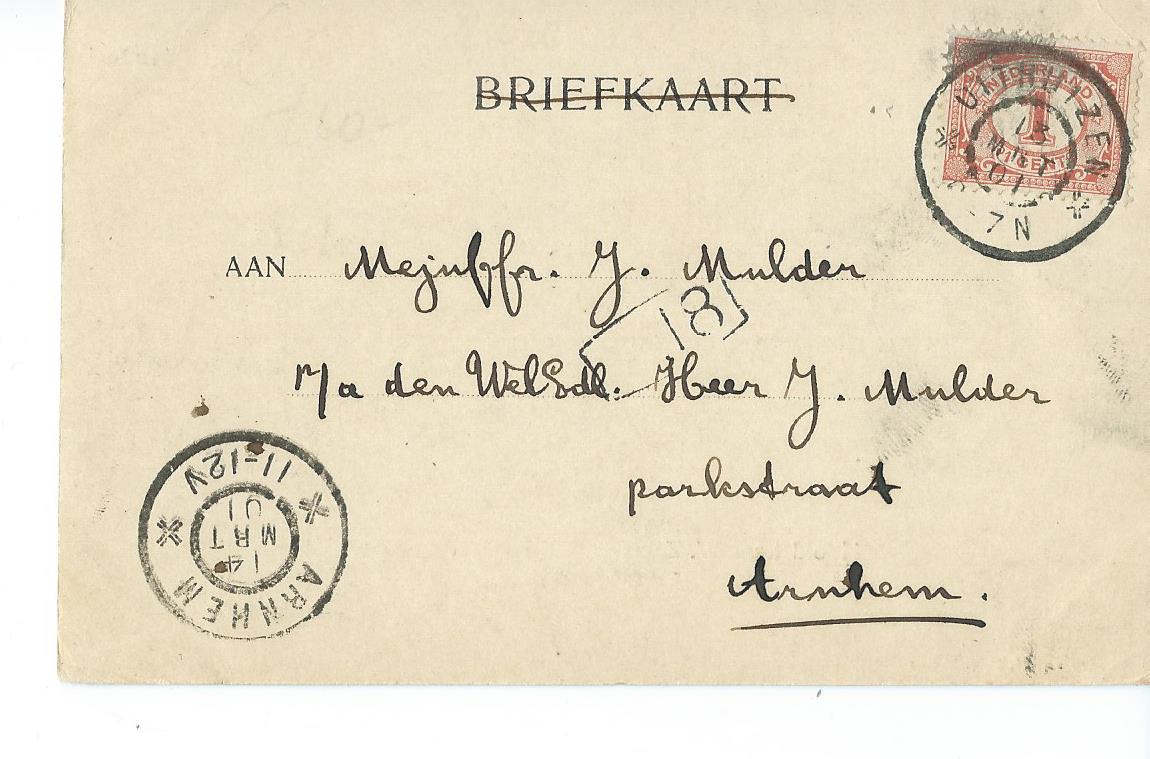 BRIEFKAART
NEDERLAND
1
CENT
UITHUIZEN
13
MRT
01
-7N
AAN Mejuffr. J. Mulder
8
p/a den WelEdl. Heer J. Mulder
parkstraat
Arnhem.
ARNHEM
14
MRT
01
11-12V